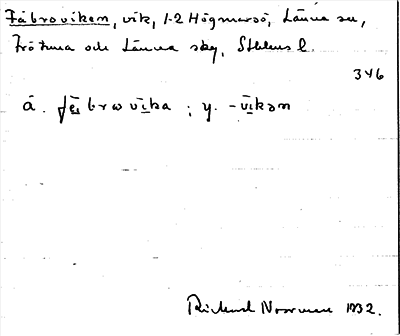 Fåbroviken, vik, 1-2 Högmarsö, Länna sn,
Frötuna och Länna skg, Sthlms l.
346
ä. fę̄brωvīka ; y. -vīkən
Rickard Norrman 1932.